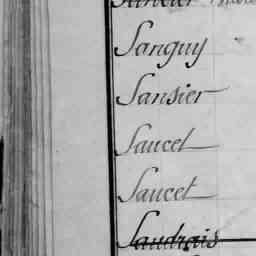 Sanguy
Sansier
Saucet
Saucet
Saudrais